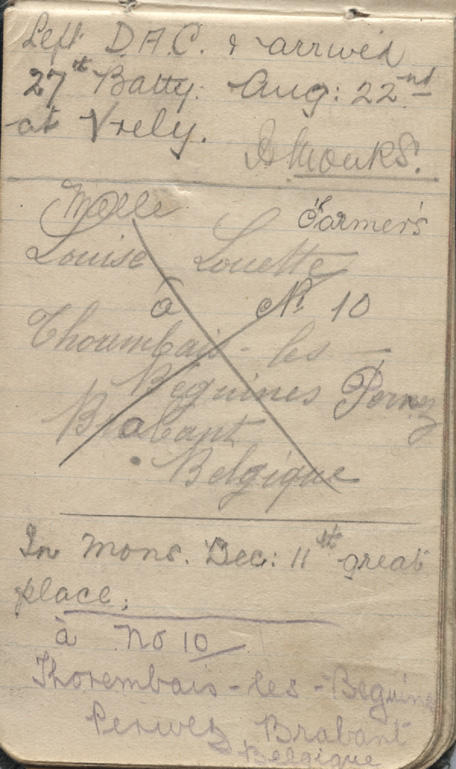 Left D.A.C. & arrived
27th Batty. Aug: 22nd
at Vrely.
Molle Farmer's
Louise Louette
à No 10
Thorembais-les-
Béguines Perwez
Brabant
Belgique
In Mons. Dec: 11th great
place.
à No 10
Thorembais-les-Beguines
Perwez Brabant
Belgique